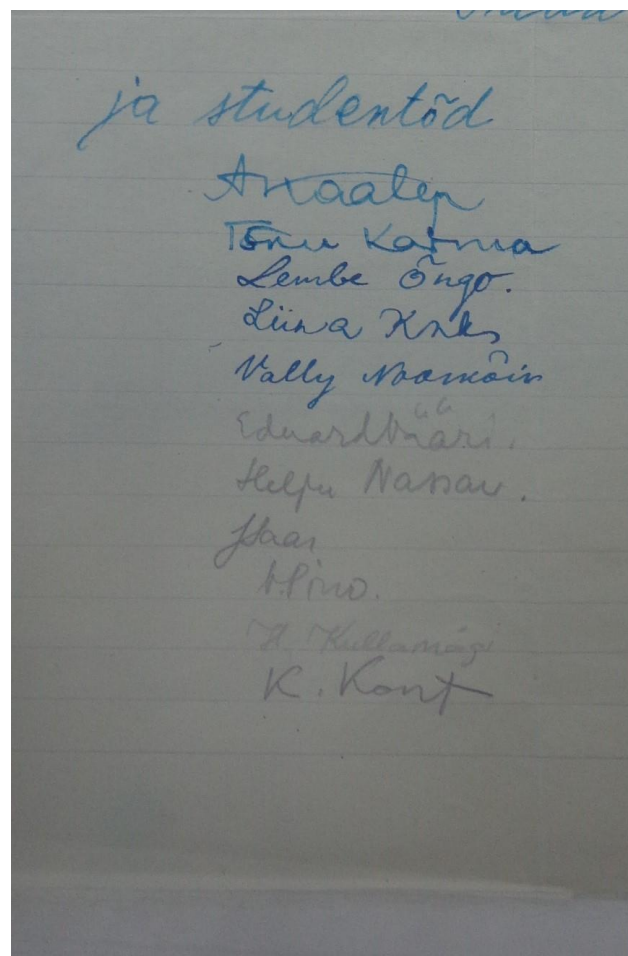 ja studentõd
A Kaalep
Tõnu Karma
Lembe Õngo.
Liina
Vally Noomõis
Eduard Vääri.
Helju Nassar.
V. Pino.
H. Kullamägi
K. Kont